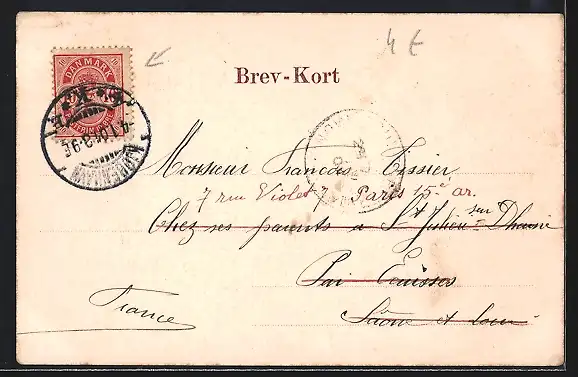 4 €
DANMARK
10 10
Brev-Kort
KJØBENHAVN
K.
Monsieur François Tissier
7 rue Violet 7 Paris 15e ar.
Chez ses parents à St Julien sur Dheune
Par Écuisses
Saône et Loire
France